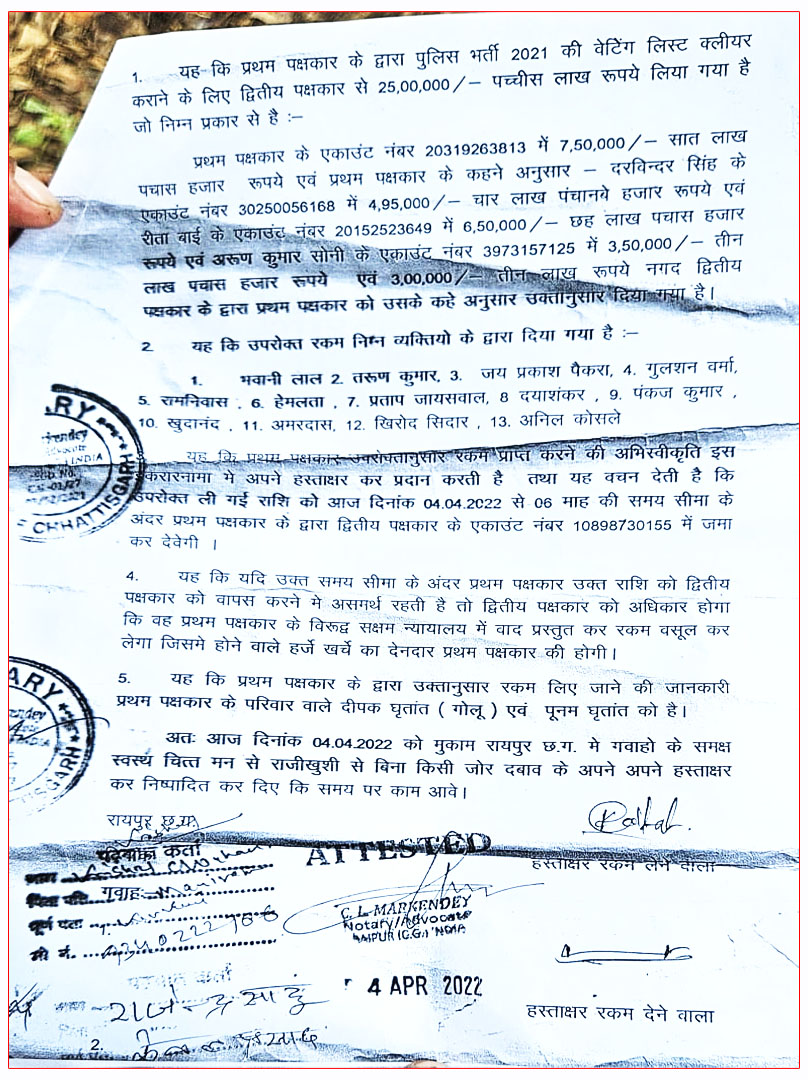 1. यह कि प्रथम पक्षकार के द्वारा पुलिस भर्ती 2021 की वेटिंग लिस्ट क्लीयर
कराने के लिए द्वितीय पक्षकार से 25,00,000/– पच्चीस लाख रूपये लिया गया है
जो निम्न प्रकार से है :–
प्रथम पक्षकार के एकाउंट नंबर 20319263813 में 7,50,000/– सात लाख
पचास हजार रूपये एवं प्रथम पक्षकार के कहने अनुसार – दरविन्दर सिंह के
एकाउंट नंबर 30250056168 में 4,95,000/– चार लाख पंचानबे हजार रूपये एवं
रीता बाई के एकाउंट नंबर 20152523649 में 6,50,000/– छह लाख पचास हजार
रूपये एवं अरूण कुमार सोनी के एकाउंट नंबर 3973157125 में 3,50,000/– तीन
लाख पचास हजार रूपये एवं 3,00,000/– तीन लाख रूपये नगद द्वितीय
पक्षकार के द्वारा प्रथम पक्षकार को उसके कहे अनुसार उक्तानुसार दिया गया है।
2. यह कि उपरोक्त रकम निम्न व्यक्तियो के द्वारा दिया गया है :–
1. भवानी लाल 2. तरूण कुमार, 3. जय प्रकाश पैकरा, 4. गुलशन वर्मा,
5. रामनिवास , 6. हेमलता , 7. प्रताप जायसवाल, 8 दयाशंकर , 9. पंकज कुमार ,
10. खुदानंद , 11. अमरदास, 12. खिरोद सिदार , 13. अनिल कोसले
यह कि प्रथम पक्षकार उपरोक्तानुसार रकम प्राप्त करने की अभिस्वीकृति इस
करारनामा मे अपने हस्ताक्षर कर प्रदान करती है तथा यह वचन देती है कि
उपरोक्त ली गई राशि को आज दिनांक 04.04.2022 से 06 माह की समय सीमा के
अंदर प्रथम पक्षकार के द्वारा द्वितीय पक्षकार के एकाउंट नंबर 10898730155 में जमा
कर देवेगी ।
4. यह कि यदि उक्त समय सीमा के अंदर प्रथम पक्षकार उक्त राशि को द्वितीय
पक्षकार को वापस करने मे असमर्थ रहती है तो द्वितीय पक्षकार को अधिकार होगा
कि वह प्रथम पक्षकार के विरूद्व सक्षम न्यायालय में वाद प्रस्तुत कर रकम वसूल कर
लेगा जिसमे होने वाले हर्जे खर्चे का देनदार प्रथम पक्षकार की होगी।
5. यह कि प्रथम पक्षकार के द्वारा उक्तानुसार रकम लिए जाने की जानकारी
प्रथम पक्षकार के परिवार वाले दीपक घृतांत ( गोलू ) एवं पूनम घृतांत को है।
अतः आज दिनांक 04.04.2022 को मुकाम रायपुर छ.ग. मे गवाहो के समक्ष
स्वस्थ चित्त मन से राजीखुशी से बिना किसी जोर दबाव के अपने अपने हस्ताक्षर
कर निष्पादित कर दिए कि समय पर काम आवे।
रायपुर छ.ग.
ATTESTED
हस्ताक्षर रकम लेने वाला
गवाहः
C.L. MARKENDEY
Notary/Advocate
RAIPUR (C.G.) INDIA
4 APR 2022
हस्ताक्षर रकम देने वाला
2.
CHHATTISGARH